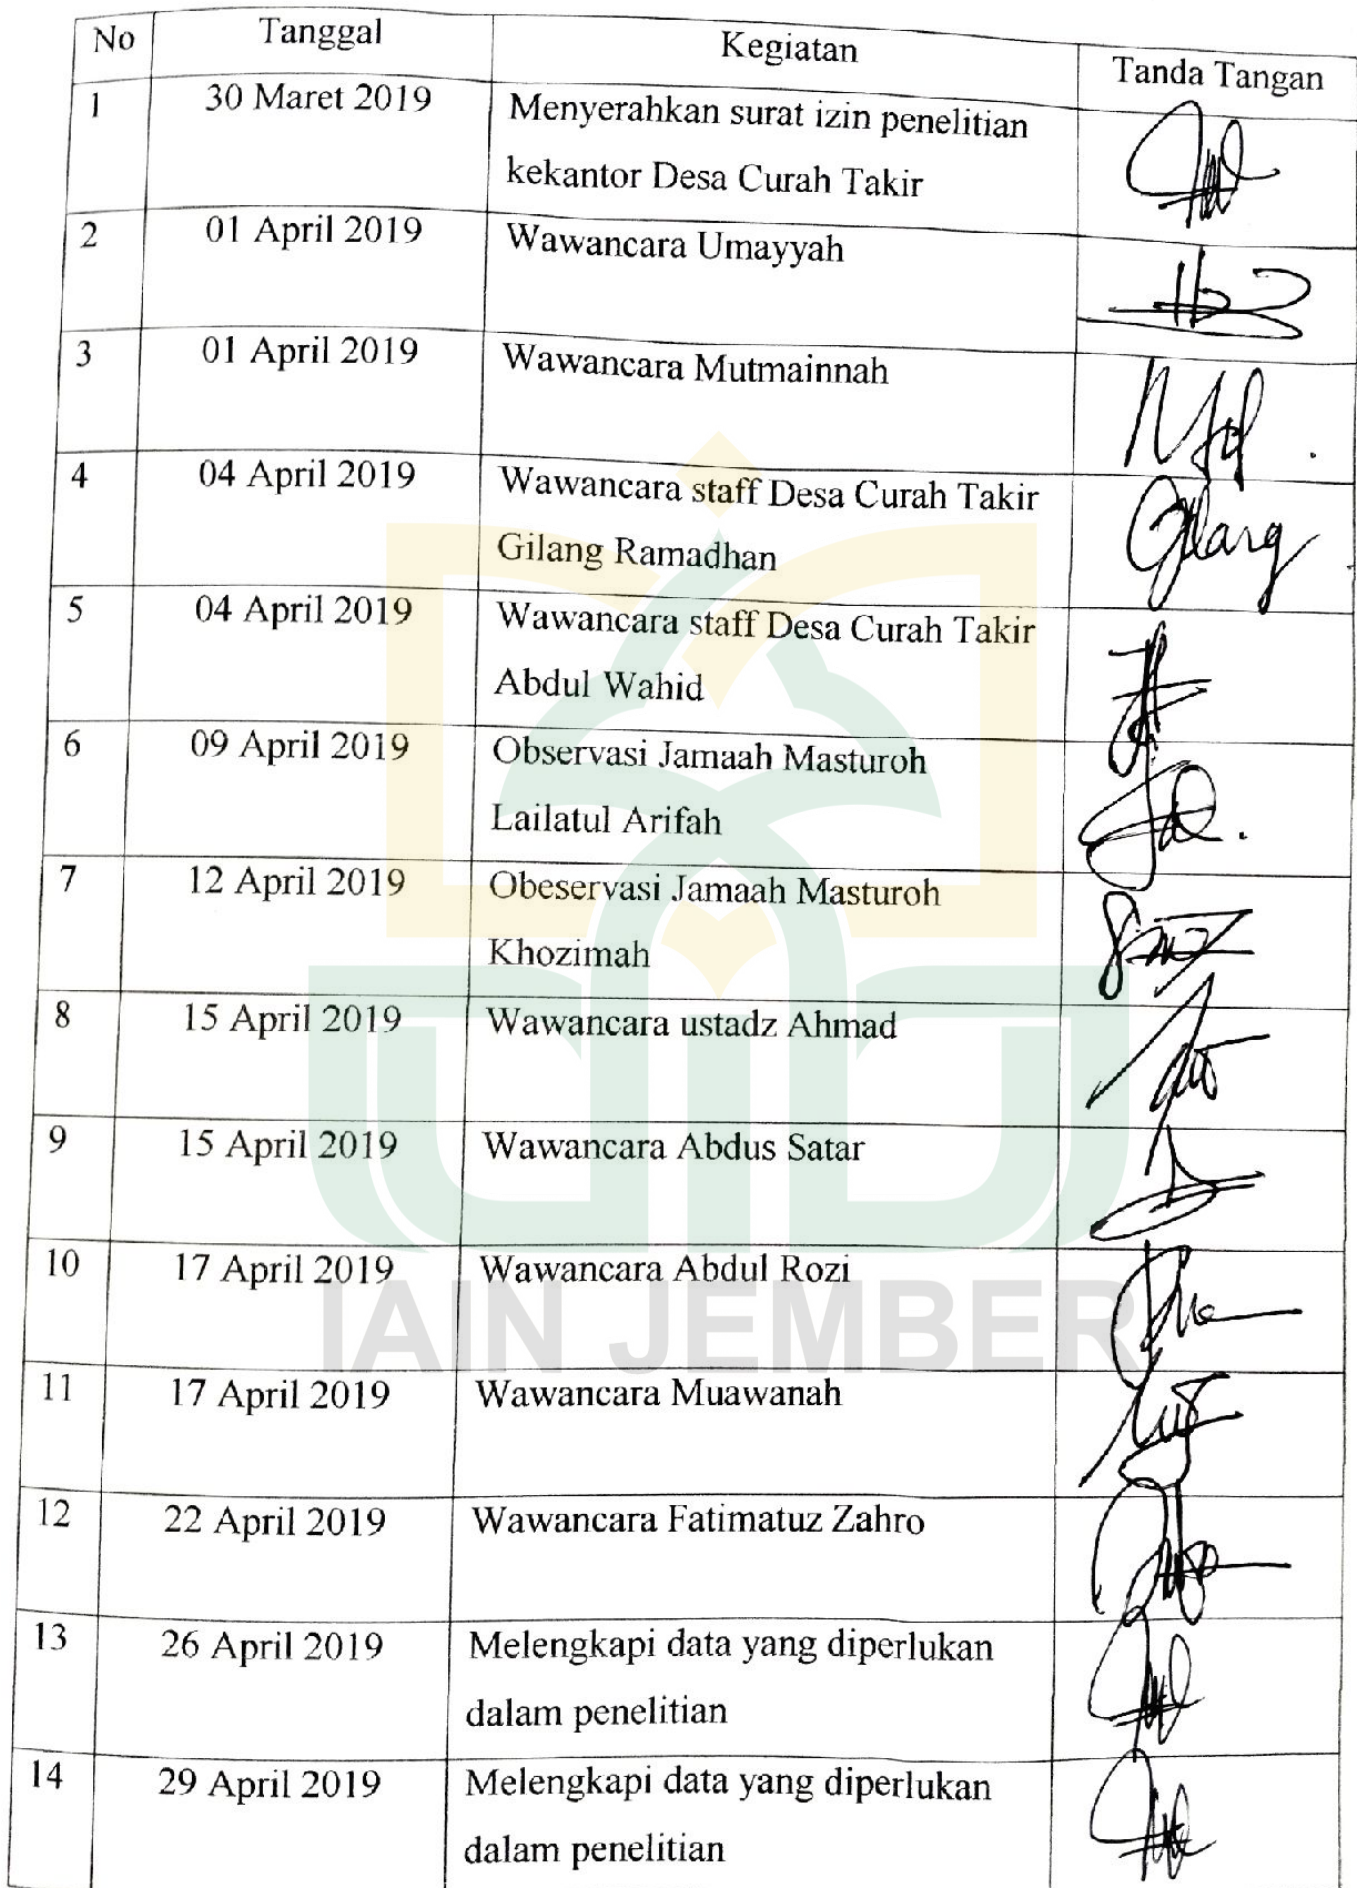 No Tanggal Kegiatan Tanda Tangan
1 30 Maret 2019 Menyerahkan surat izin penelitian
kekantor Desa Curah Takir
2 01 April 2019 Wawancara Umayyah
3 01 April 2019 Wawancara Mutmainnah
4 04 April 2019 Wawancara staff Desa Curah Takir
Gilang Ramadhan Gilang
5 04 April 2019 Wawancara staff Desa Curah Takir
Abdul Wahid
6 09 April 2019 Observasi Jamaah Masturoh
Lailatul Arifah
7 12 April 2019 Obeservasi Jamaah Masturoh
Khozimah
8 15 April 2019 Wawancara ustadz Ahmad
9 15 April 2019 Wawancara Abdus Satar
10 17 April 2019 Wawancara Abdul Rozi
IAIN JEMBER
11 17 April 2019 Wawancara Muawanah
12 22 April 2019 Wawancara Fatimatuz Zahro
13 26 April 2019 Melengkapi data yang diperlukan
dalam penelitian
14 29 April 2019 Melengkapi data yang diperlukan
dalam penelitian